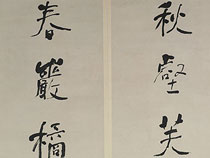 秋壑芙
春巖橘